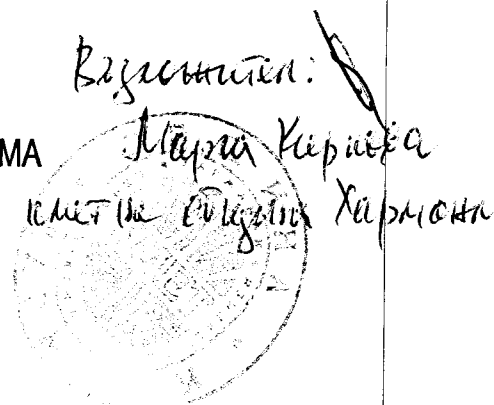 Възложител:
МА Мария Киркова
кмет на община Харманли